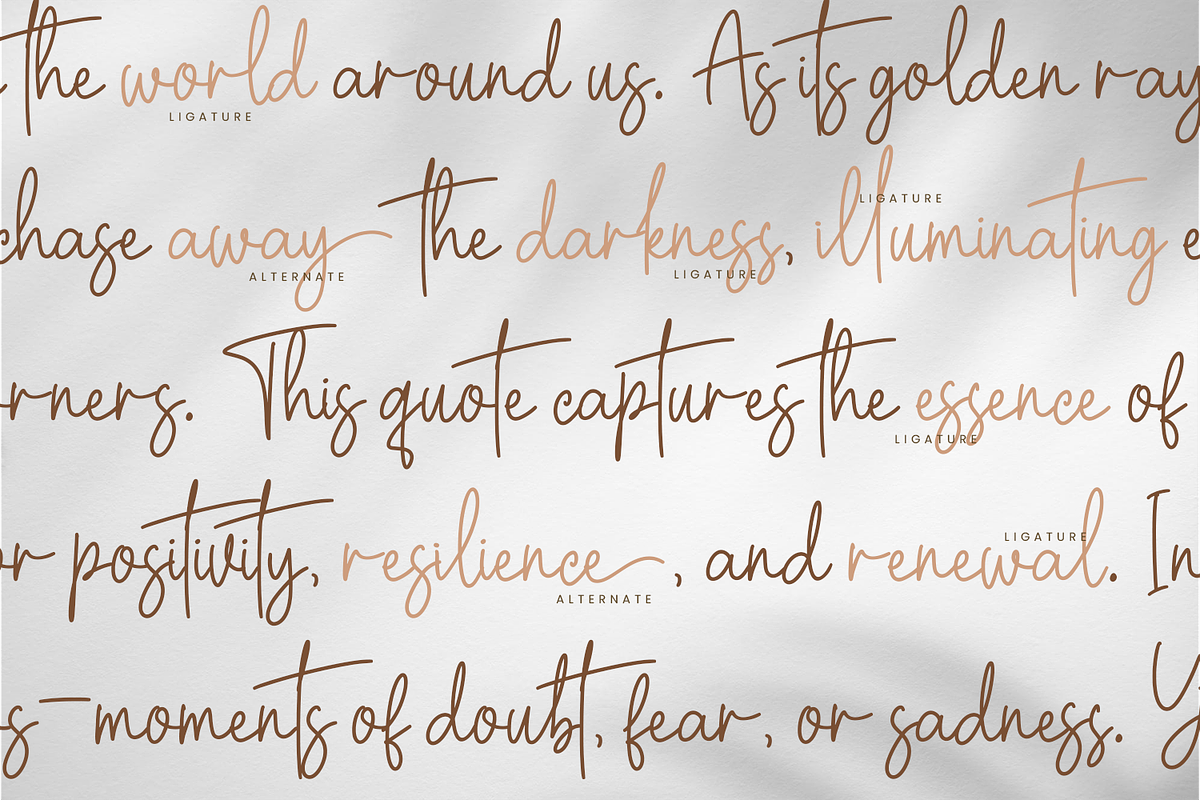 the world around us. As its golden ray
LIGATURE
chase away the darkness, illuminating e
LIGATURE
ALTERNATE
LIGATURE
rners. This quote captures the essence of
LIGATURE
or positivity, resilience, and renewal. In
LIGATURE
ALTERNATE
s—moments of doubt, fear, or sadness. Y